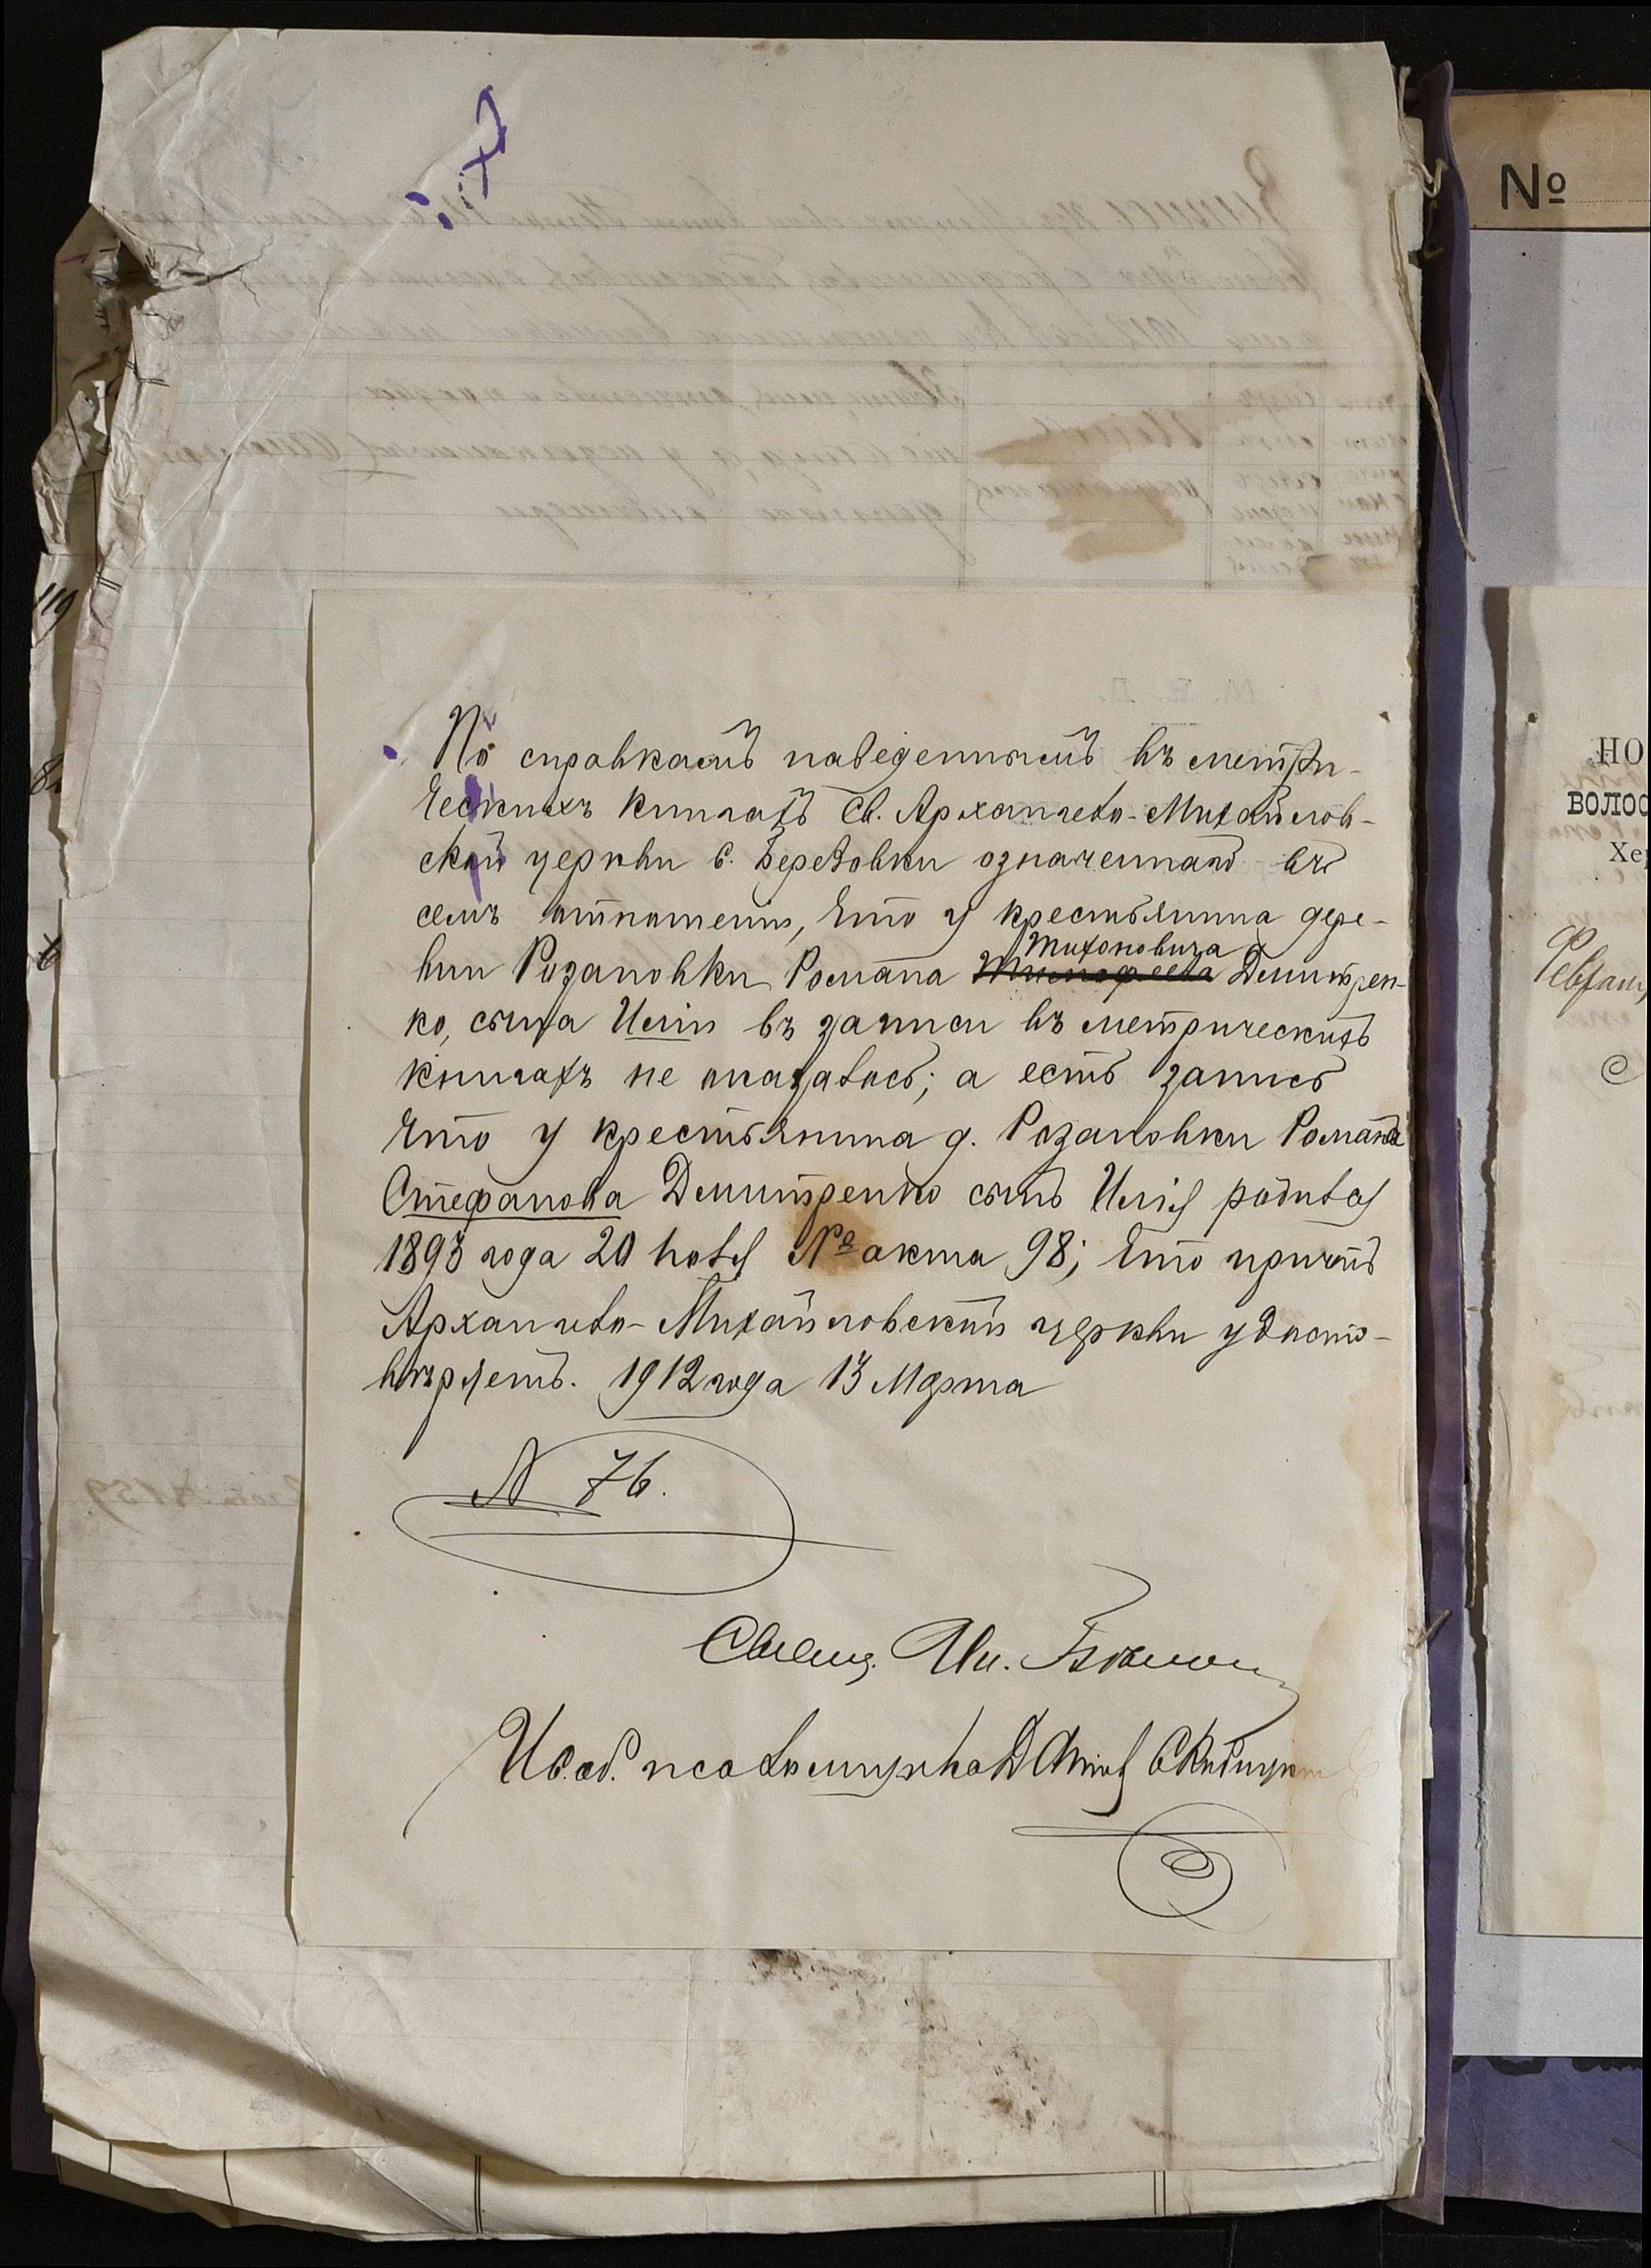 По справкамъ наведеннымъ въ метри-
ческихъ книгахъ Св. Архангело-Михайлов-
ской церкви с. Березовки означеннаго въ
семъ отношеніи, что у крестьянина дере-
вни Розановки Романа Тимофеева Тихоновича Димитрен-
ко, сына Иліи въ записи въ метрическихъ
книгахъ не оказалось; а есть запись
что у крестьянина д. Розановки Романа
Стефанова Димитренко сынъ Илія родился
1893 года 20 іюля № акта 98; что причтъ
Архангело-Михайловской церкви удосто-
вѣряетъ. 1912 года 13 Марта
N 76.
Священ. Ил.
И. об. псаломщика
№
НО
ВОЛОС
Хе
Февраля
119